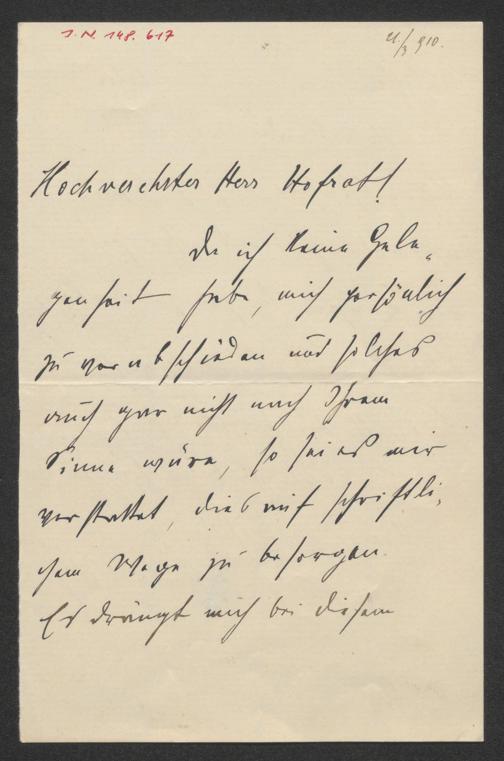 I. N. 148.617
21./3 910.
Hochverehrter Herr Hofrat!
Da ich keine Gele-
genheit habe, mich persönlich
zu verabschieden und solches
auch gar nicht nach Ihrem
Sinne wäre, so sei es mir
verstattet, dies auf schriftli-
chem Wege zu besorgen.
Es drängt mich bei diesem